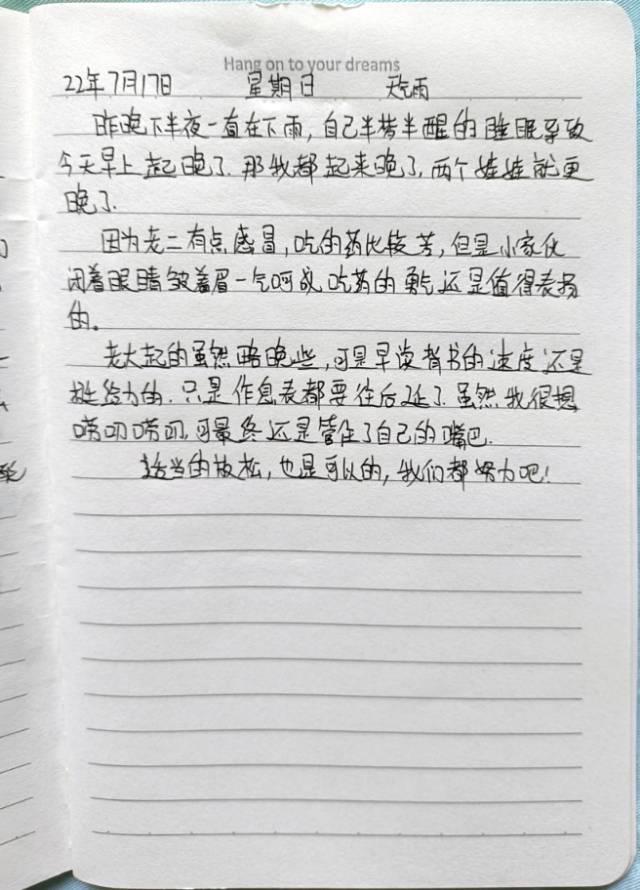 Hang on to your dreams
22年7月17日 星期日 天气雨
昨晚下半夜一直在下雨,自己半梦半醒的睡眠导致
今天早上起晚了.那我都起来晚了,两个娃娃就更
晚了.
因为老二有点感冒,吃的药比较苦,但是小家伙
闭着眼睛皱着眉一气呵成,吃药的勇气还是值得表扬
的。
老大起的虽然略晚些,可是早读背书的速度还是
挺给力的.只是作息表都要往后延了.虽然我很想
唠叨唠叨,可最终还是管住了自己的嘴巴.
适当的放松,也是可以的,我们都努力吧!